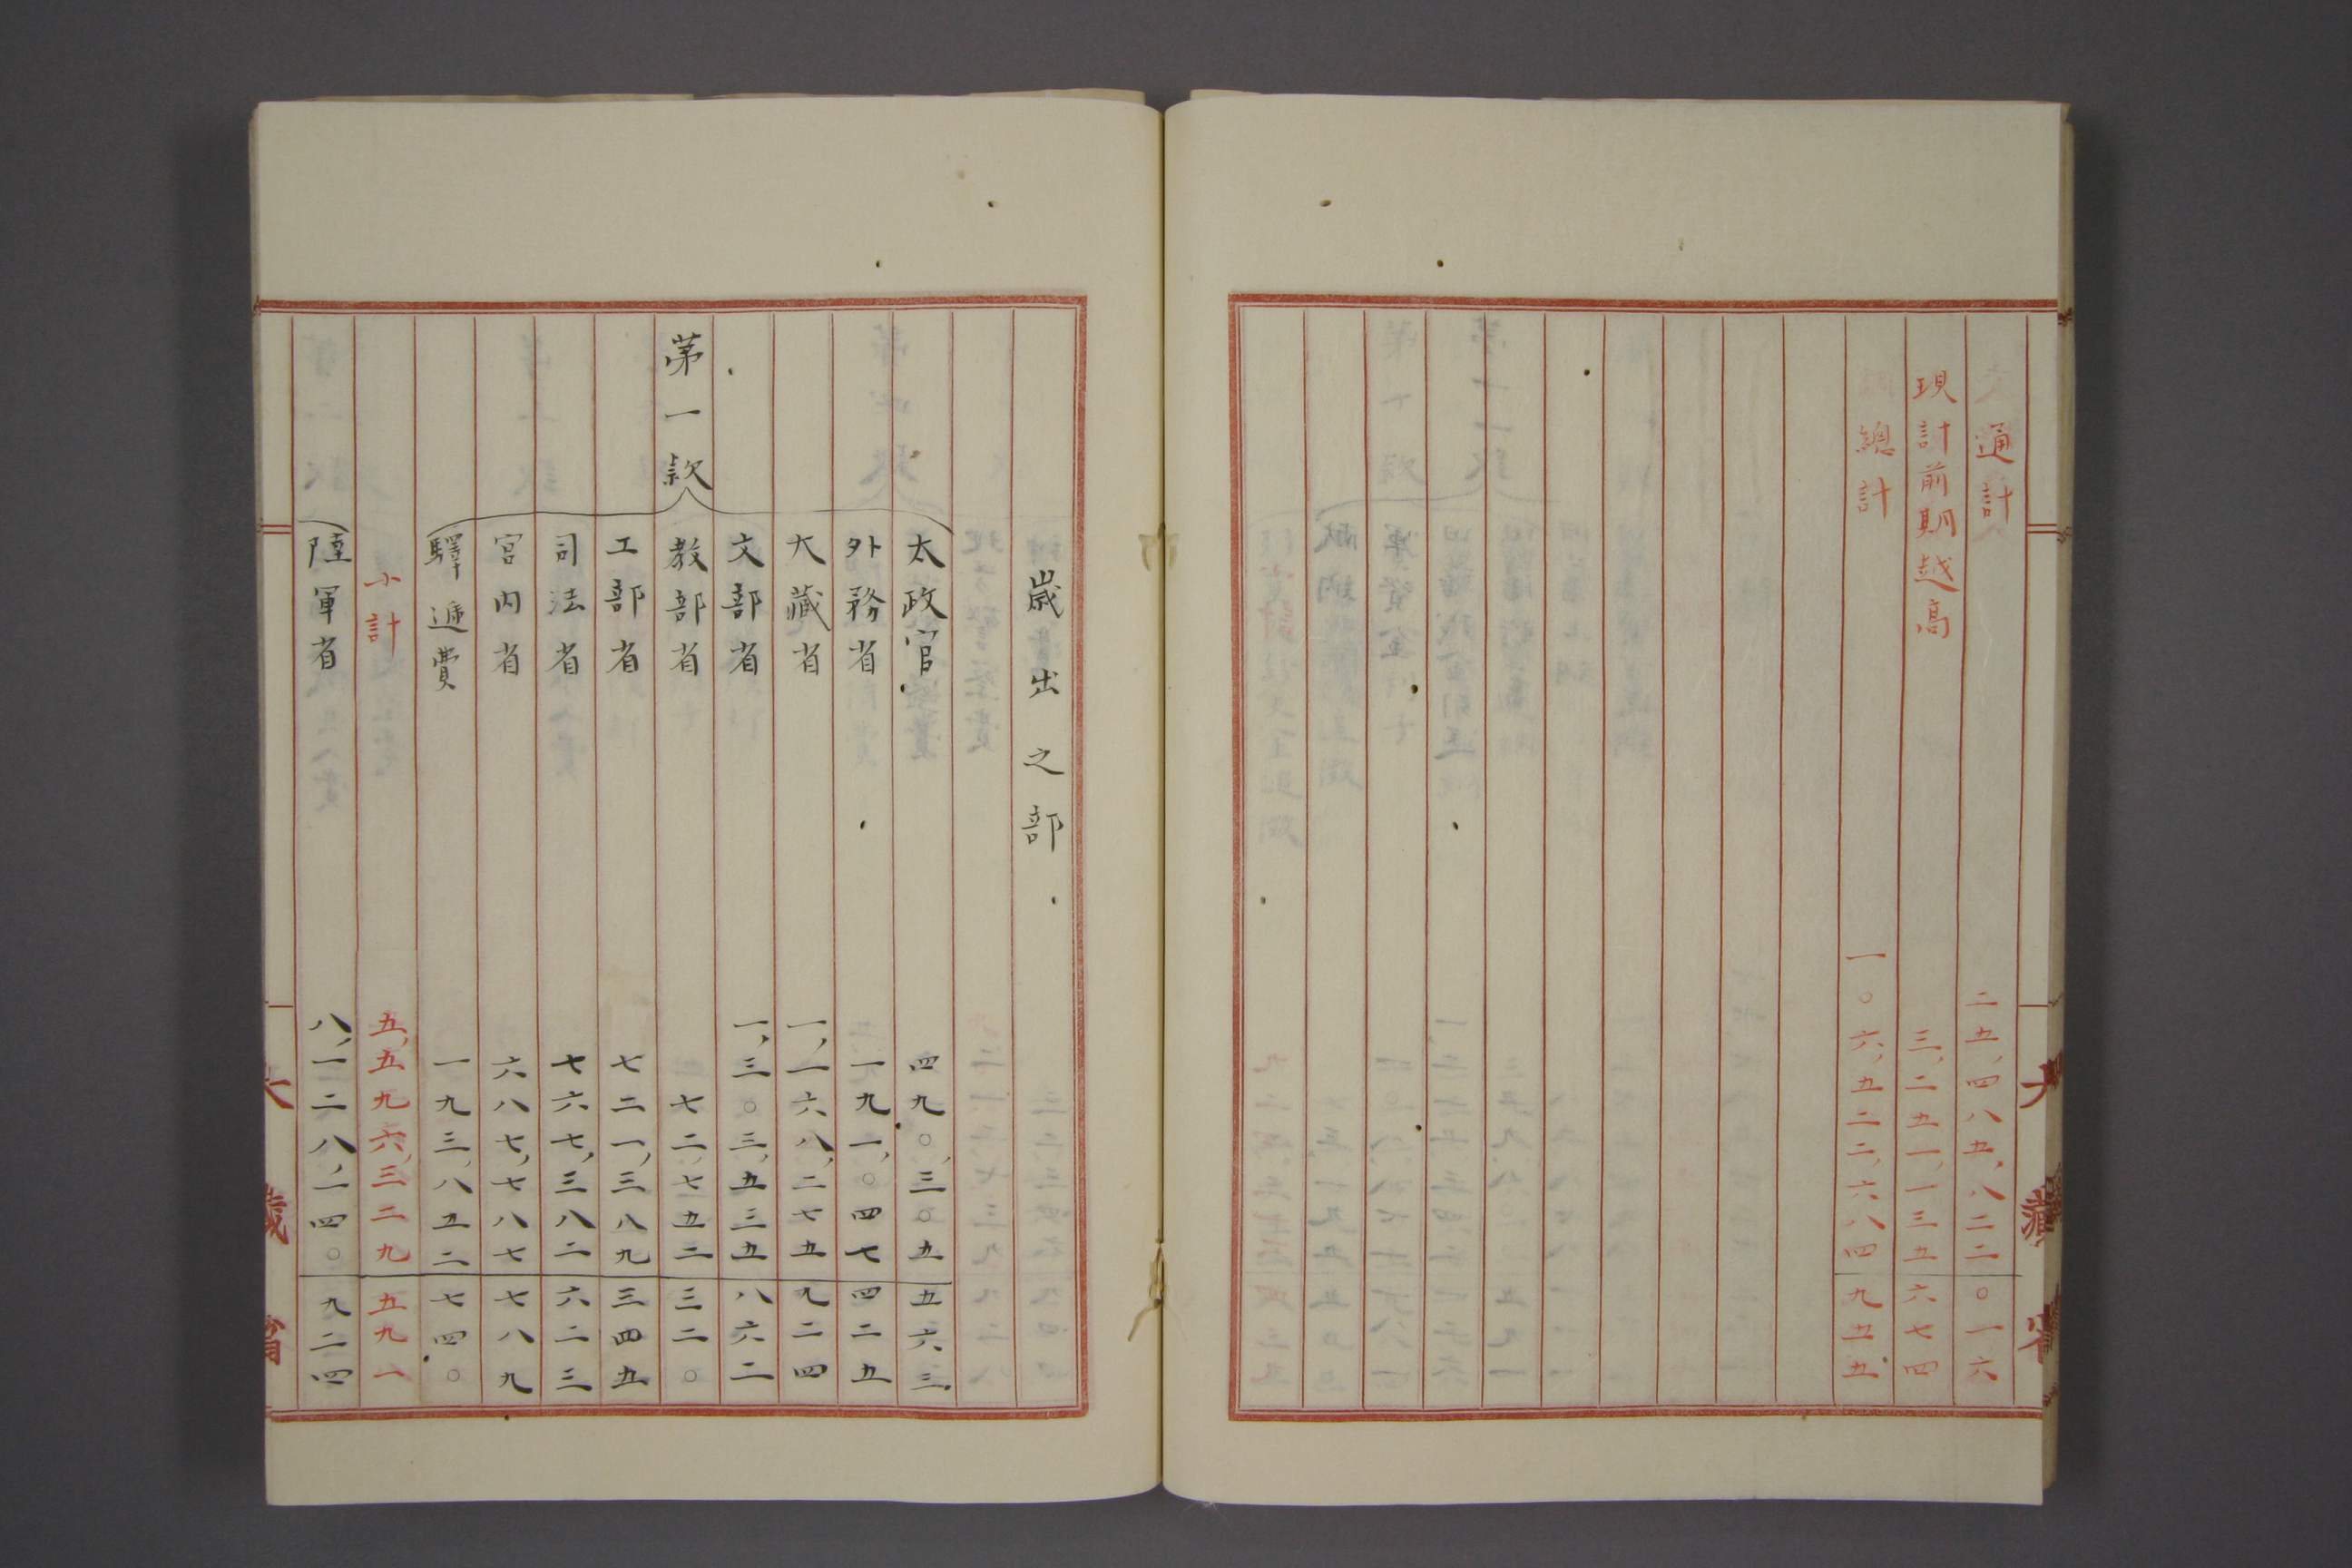 大藏省
通計 二五,四八五,八二二 〇一六
現計前期越高 三,二五一,一三五 六七四
總計 一〇六,五二二,六八四 九五五
歳出之部
第一款
太政官 四九〇,三〇五 五六三
外務省 一九一,〇四七 四二五
大藏省 一,一六八,二七五 九二四
文部省 一,三〇三,五三五 八六二
教部省 七二,七五二 三二〇
工部省 七二一,三八九 三四五
司法省 七六七,三八二 六二三
宮内省 六八七,七八七 七八九
驛遞費 一九三,八五二 七四〇
小計 五,五九六,三二九 五九一
陸軍省 八,一二八,一四〇 九二四
大藏省